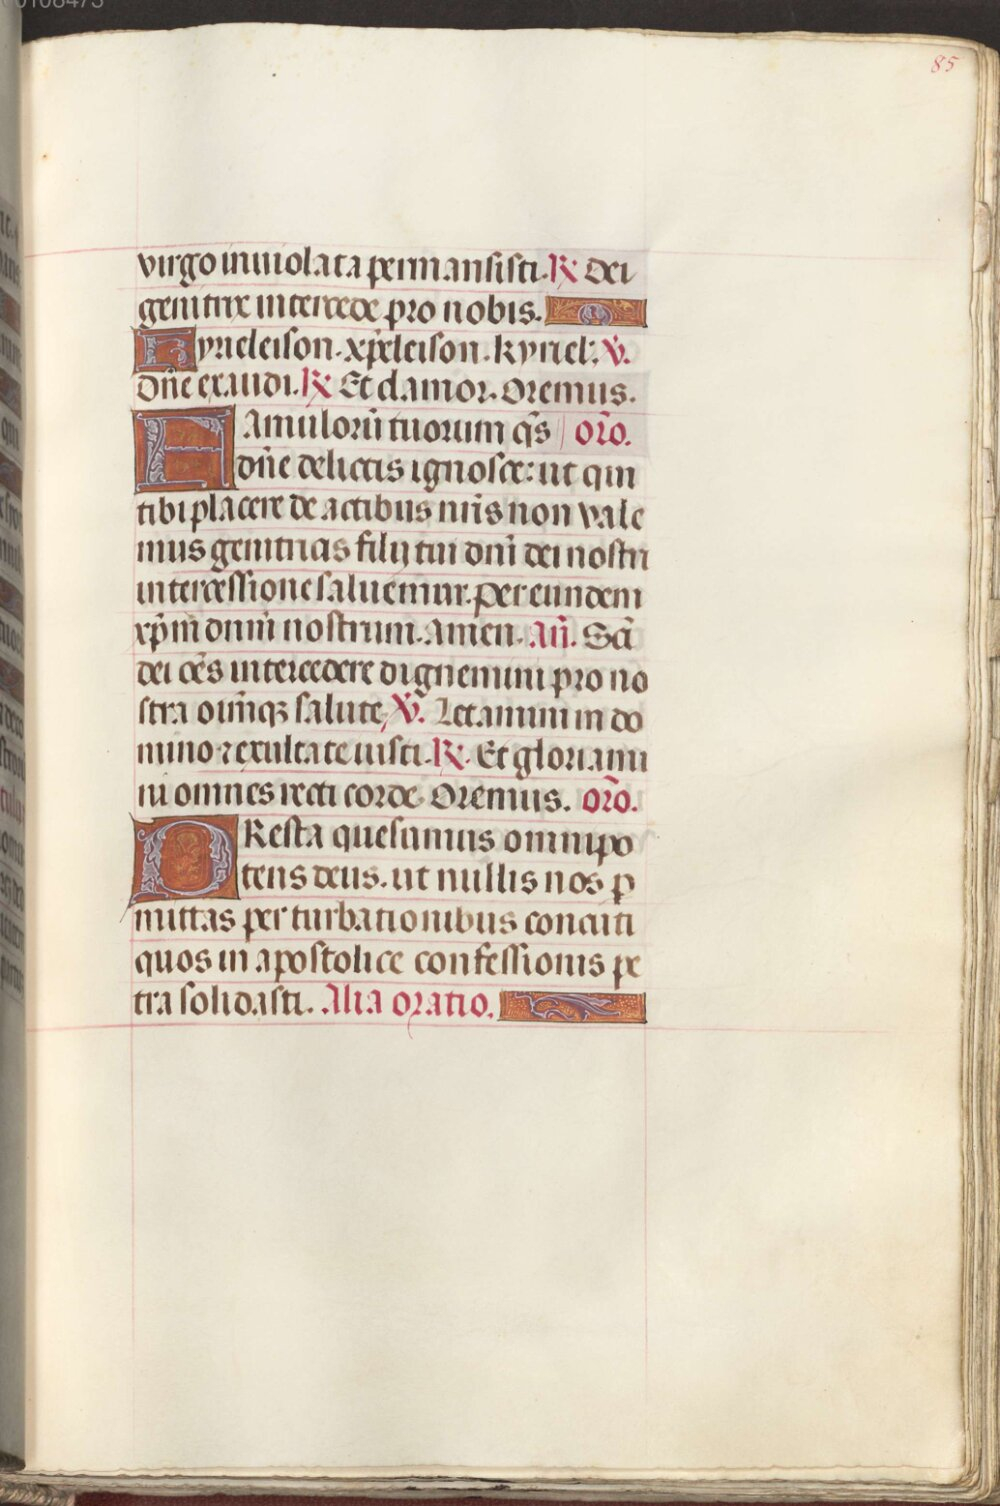 00108473
85
virgo inuiolata permansisti. ℟ Dei
genitrix intercede pro nobis.
Kyrieleison. xp̄eleison. Kyriel̄. ℣.
Dn̄e exaudi. ℟ Et clamor. Oremus.
Famulorū tuorum q̄s or̄o.
dn̄e delictis ignosce: ut qui
tibi placere de actibus nr̄is non vale
mus genitricis filij tui dn̄i dei nostri
intercessione saluemur. Per eundem
xp̄m dn̄m nostrum. Amen. An̄. Sc̄i
dei oēs intercedere dignemini pro no
stra oim̄qꝫ salute. ℣. Letamini in do
mino ⁊ exultate iusti. ℟. Et gloriami
ni omnes recti corde. Oremus. or̄o.
PResta quesumus omnipo
tens deus. ut nullis nos ꝑ
mittas perturbationibus concuti
quos in apostolice confessionis pe
tra solidasti. Alia oratio.